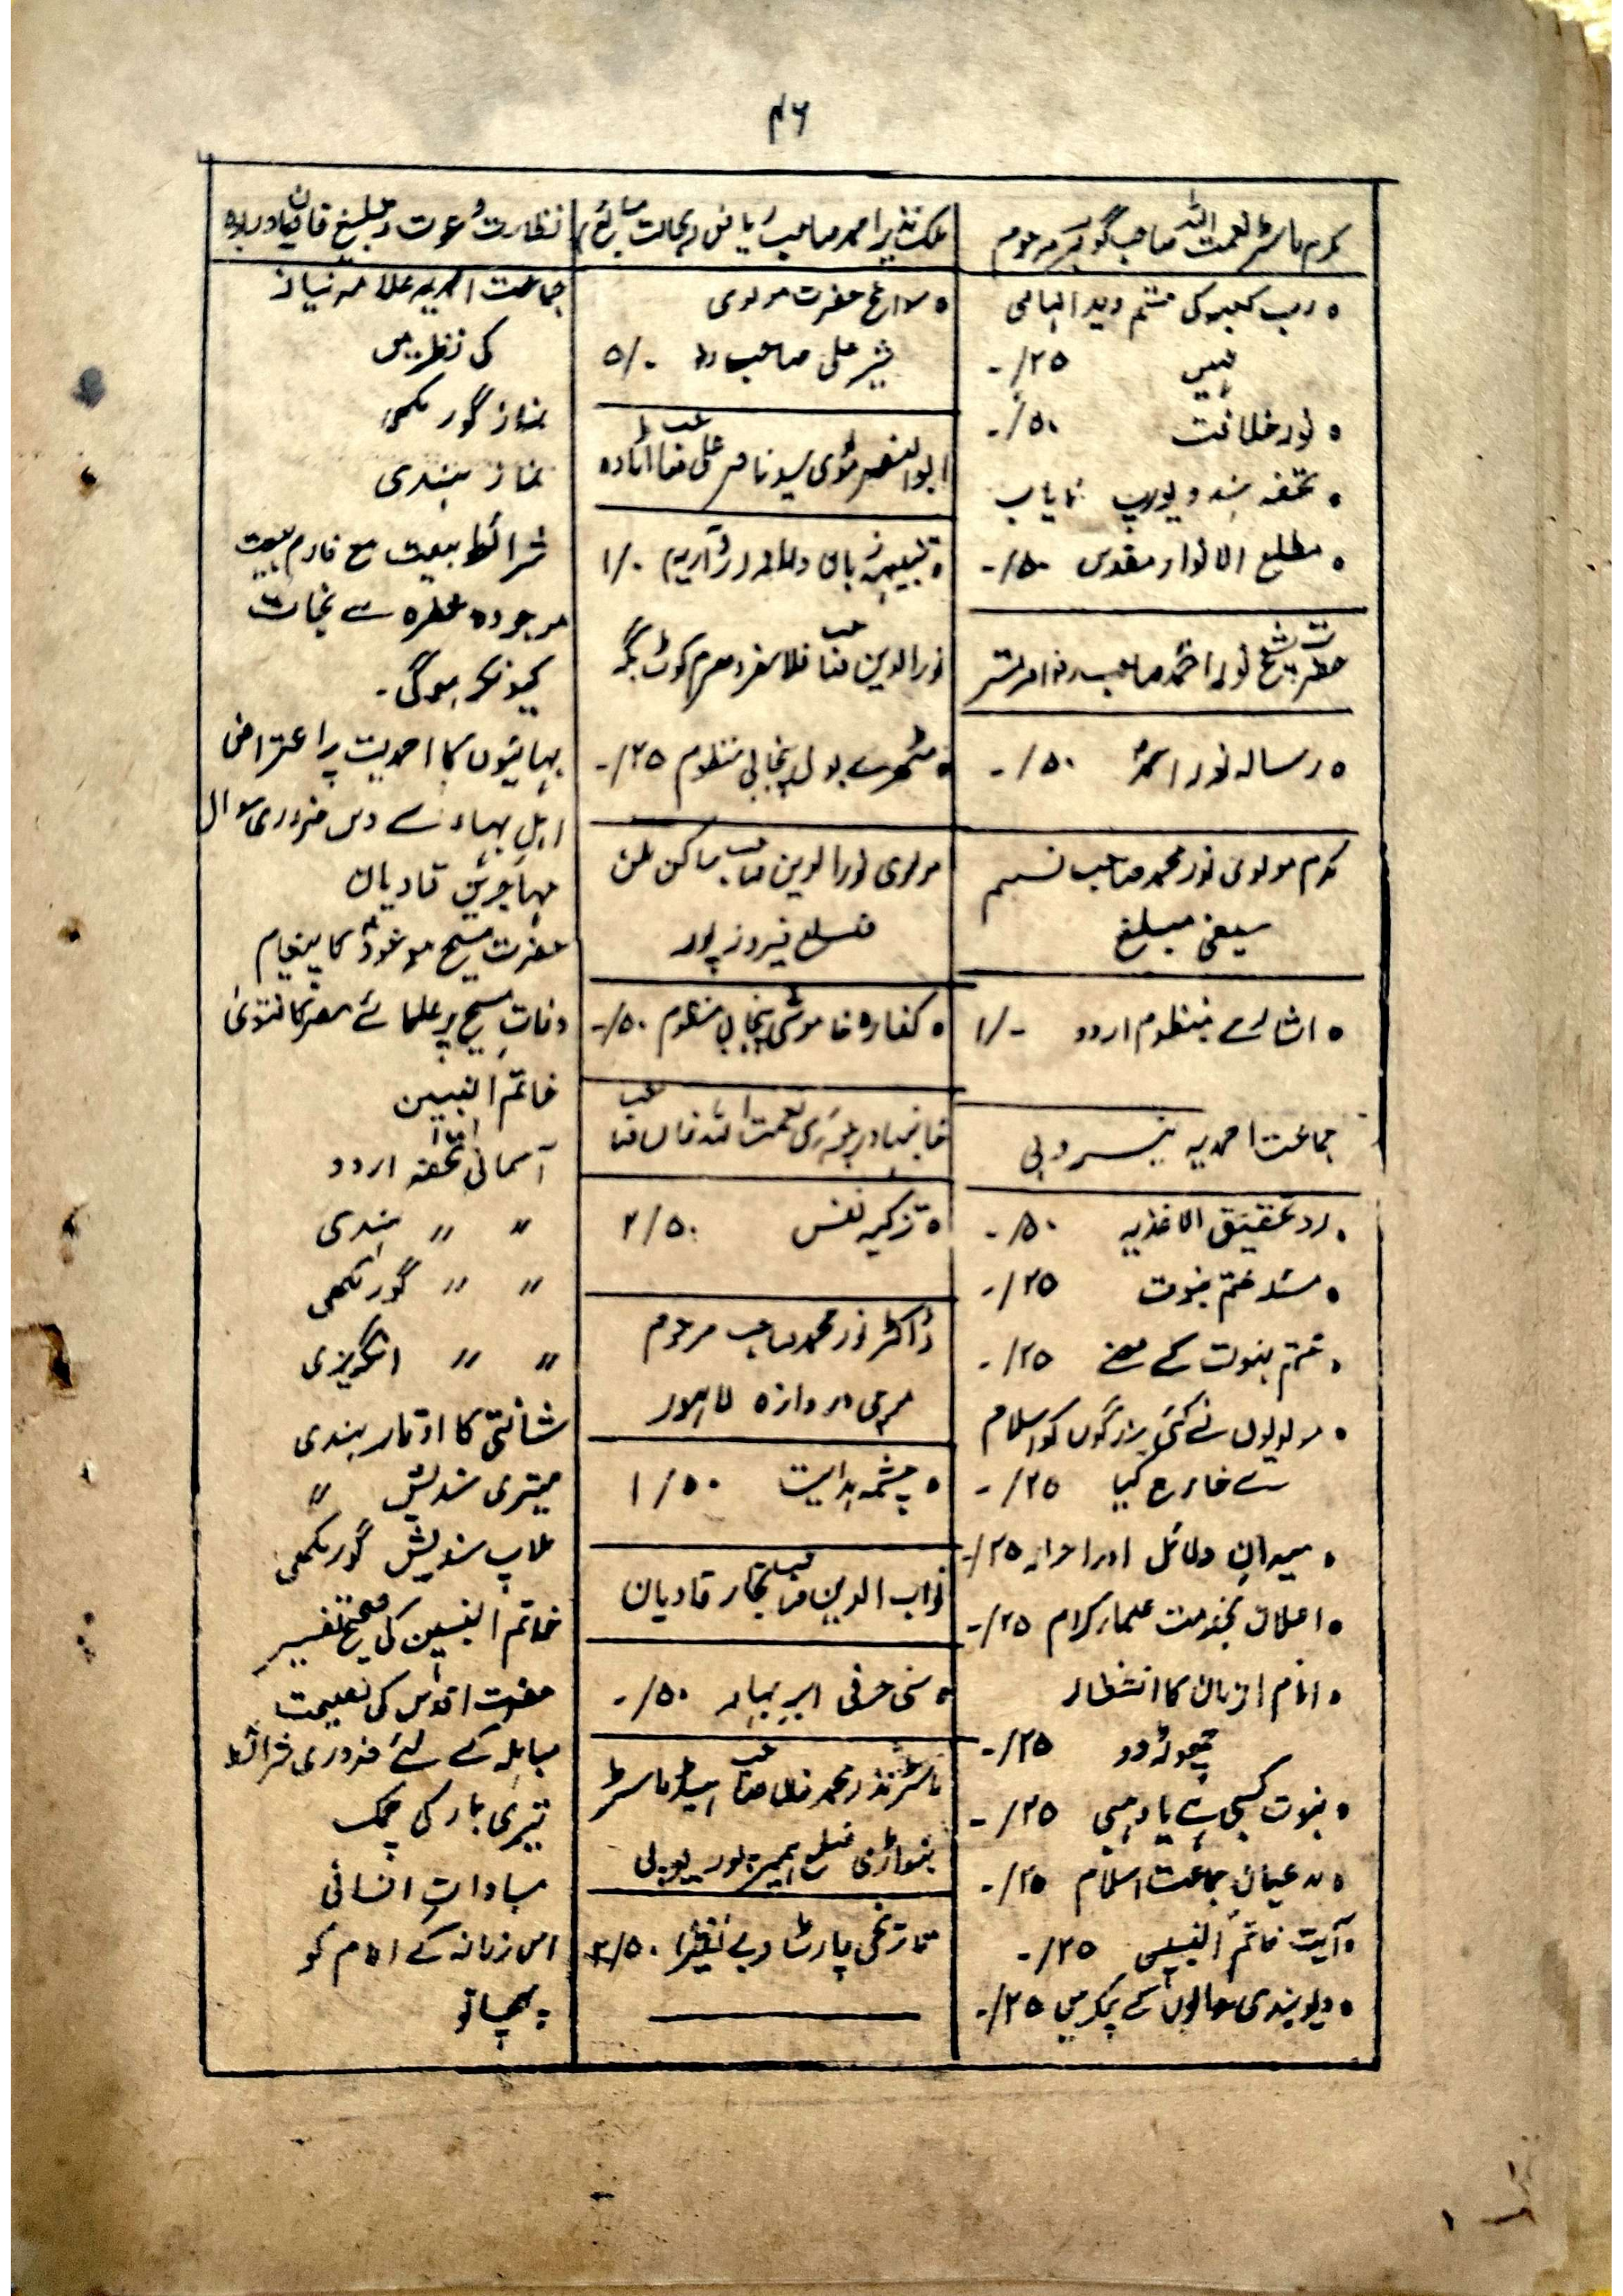 ۴۶
مکرم ماسٹر نعمت اللہ صاحب گوہر مرحوم
• رب کعبہ کی قسم وید الہامی
نہیں ۲۵/-
• نور خلافت ۵۰/-
• تحفہ ہند و یورپ نایاب
• مطلع الانوار مقدس ۵۰/-
حضرت شیخ نور احمد صاحب رضؓ امرتسر
• رسالہ نور احمدؐ ۵۰/-
مکرم مولوی نور محمد صاحب نسیم
سیفی مبلغ
• اشارے منظوم اردو ۱/-
جماعت احمدیہ نیروبی
• رد تحقیق الاغذیہ ۵۰/-
• مسئلہ ختم نبوت ۲۵/-
• ختم نبوت کے معنے ۲۵/-
• مولویوں نے کئی بزرگوں کو اسلام
سے خارج کیا ۲۵/-
• میدان دلائل اور احرار ۲۵/-
• اعلان بخدمت علماء کرام ۲۵/-
• امام الزمان کا انتظار
چھوڑ دو ۲۵/-
• نبوت کسبی ہے یا وہبی ۲۵/-
• مدعیان جماعت اسلام ۲۵/-
• آیت خاتم النبیین ۲۵/-
• دیوبندی سوالوں کے چکر میں ۲۵/-
ملک نذیر احمد صاحب ریاض
• سوانح حضرت مولوی
شیر علی صاحب رضؓ ۵/-
ابو النصر مولوی سید ناصر علی صاحب
• تنبیہہ زبان ۱/-
نور الدین صاحب فلاسفر دھرم کوٹ بگہ
• مٹھڑے بول پنجابی منظوم ۲۵/-
مولوی نور الدین صاحب ساکن
ضلع فیروز پور
• کفارہ خاموشی پنجابی منظوم ۵۰/-
خان بہادر چوہدری نعمت اللہ خاں صاحب
• تزکیہ نفس ۲/۵۰
ڈاکٹر نور محمد صاحب مرحوم
موچی دروازہ لاہور
• چشمہ ہدایت ۱/۵۰
نواب الدین صاحب نجار قادیان
• سی حرفی ابر بہار ۵۰/-
ماسٹر نذر محمد خاں صاحب ہیڈ ماسٹر
پنواڑی ضلع ہمیر پور یوپی
تاریخی پارٹ ۲/۵۰
نظارت دعوت و تبلیغ قادیان و ربوہ
جماعت احمدیہ علامہ نیاز
کی نظر میں
نماز گورمکھی
نماز ہندی
شرائط بیعت مع فارم بیعت
موجودہ خطرہ سے نجات
کیونکر ہوگی۔
بہائیوں کا احمدیت پر اعتراض
اہل بہاء سے دس ضروری سوال
مہاجرین قادیان
حضرت مسیح موعودؑ کا پیغام
وفات مسیح پر علمائے مصر کا فتویٰ
خاتم النبیین
آسمانی تحفہ اردو
〃 〃 ہندی
〃 〃 گورمکھی
〃 〃 انگریزی
شانتی کا اوتار ہندی
میتری سندیش 〃
ملاپ سندیش گورمکھی
خاتم النبیین کی صحیح تفسیر
حضرت اقدس کی نصیحت
مباہلہ کے لئے ضروری شرائط
تیری بار کی چمک
مساوات انسانی
اس زمانہ کے امام کو
پہچانو